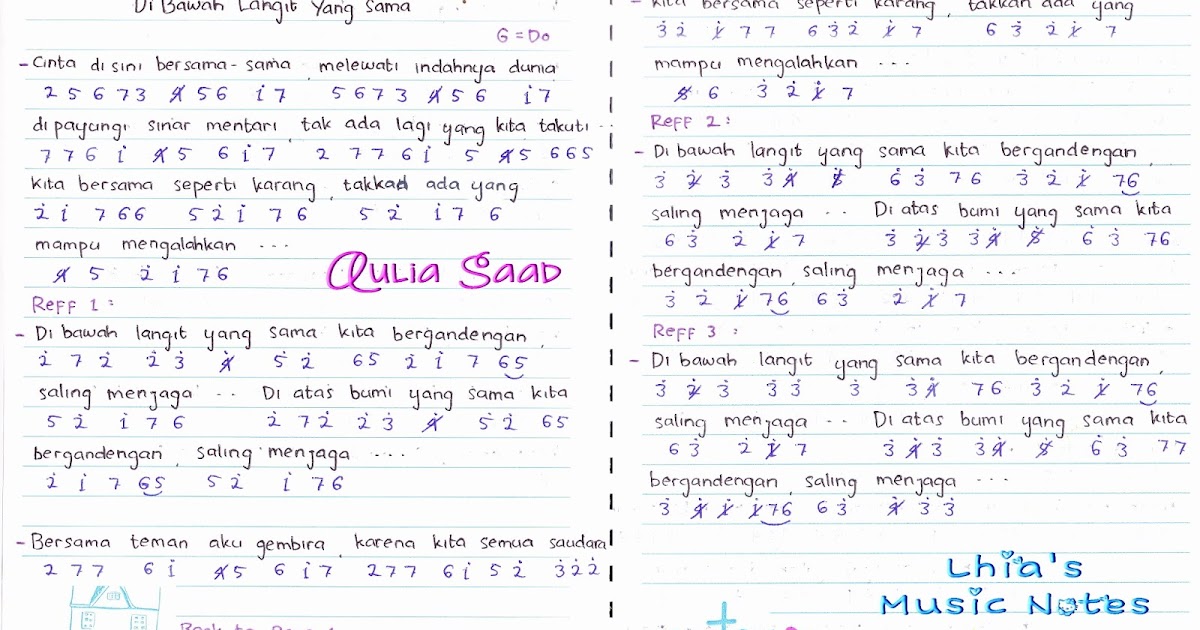 Di Bawah Langit Yang Sama
G = Do
- Cinta di sini bersama-sama, melewati indahnya dunia
2 5 6 7 3 4̸ 5 6 i̇ 7 5 6 7 3 4̸ 5 6 i̇ 7
di payungi sinar mentari, tak ada lagi yang kita takuti ..
7 7 6 i̇ 4̸ 5 6 i̇ 7 2 7 7 6 i̇ 5 4̸ 5 6 6 5
kita bersama seperti karang, takkad ada yang
2̇ i̇ 7 6 6 5 2̇ i̇ 7 6 5 2̇ i̇ 7 6
mampu mengalahkan ...
4̸ 5 2̇ i̇ 7 6
Aulia Saad
Reff 1 :
- Di bawah langit yang sama kita bergandengan,
2̇ 7 2̇ 2̇ 3̇ 4̸̇ 5 2̇ 6 5 2̇ i̇ 7 6 5
saling menjaga .. Di atas bumi yang sama kita
5 2̇ i̇ 7 6 2̇ 7 2̇ 2̇ 3̇ 4̸̇ 5 2̇ 6 5
bergandengan, saling menjaga ...
2̇ i̇ 7 6 5 5 2̇ i̇ 7 6
- Bersama teman aku gembira, karena kita semua saudara
2 7 7 6 i̇ 4̸ 5 6 i̇ 7 2 7 7 6 i̇ 5 2̇ 3̇ 2̇ 2̇
- kita bersama seperti karang, takkan ada yang
3̇ 2̇ 1̸̇ 7 7 6 3̇ 2̇ 1̸̇ 7 6 3̇ 2̇ 1̸̇ 7
mampu mengalahkan ...
5̸ 6 3̇ 2̇ 1̸̇ 7
Reff 2 :
- Di bawah langit yang sama kita bergandengan,
3̇ 2̸̇ 3̇ 3̇ 4̸̇ 5̸̇ 6 3̇ 7 6 3̇ 2̇ 1̸̇ 7 6
saling menjaga .. Di atas bumi yang sama kita
6 3̇ 2̇ 1̸̇ 7 3̇ 2̸̇ 3̇ 3̇ 4̸̇ 5̸̇ 6 3̇ 7 6
bergandengan, saling menjaga ...
3̇ 2̇ 1̸̇ 7 6 6 3̇ 2̇ 1̸̇ 7
Reff 3 :
- Di bawah langit yang sama kita bergandengan,
3̇ 2̸̇ 3̇ 3̇ 3̇ 3̇ 3̇ 4̸̇ 7 6 3̇ 2̇ 1̸̇ 7 6
saling menjaga .. Di atas bumi yang sama kita
6 3̇ 2̇ 1̸̇ 7 3̇ 4̸̇ 3̇ 3̇ 4̸̇ 5̸̇ 6 3̇ 7 7
bergandengan, saling menjaga ...
3̇ 4̸̇ 1̸̇ 1̸̇ 7 6 6 3̇ 4̸̇ 3̇ 3̇
Lhia's
Music Notes